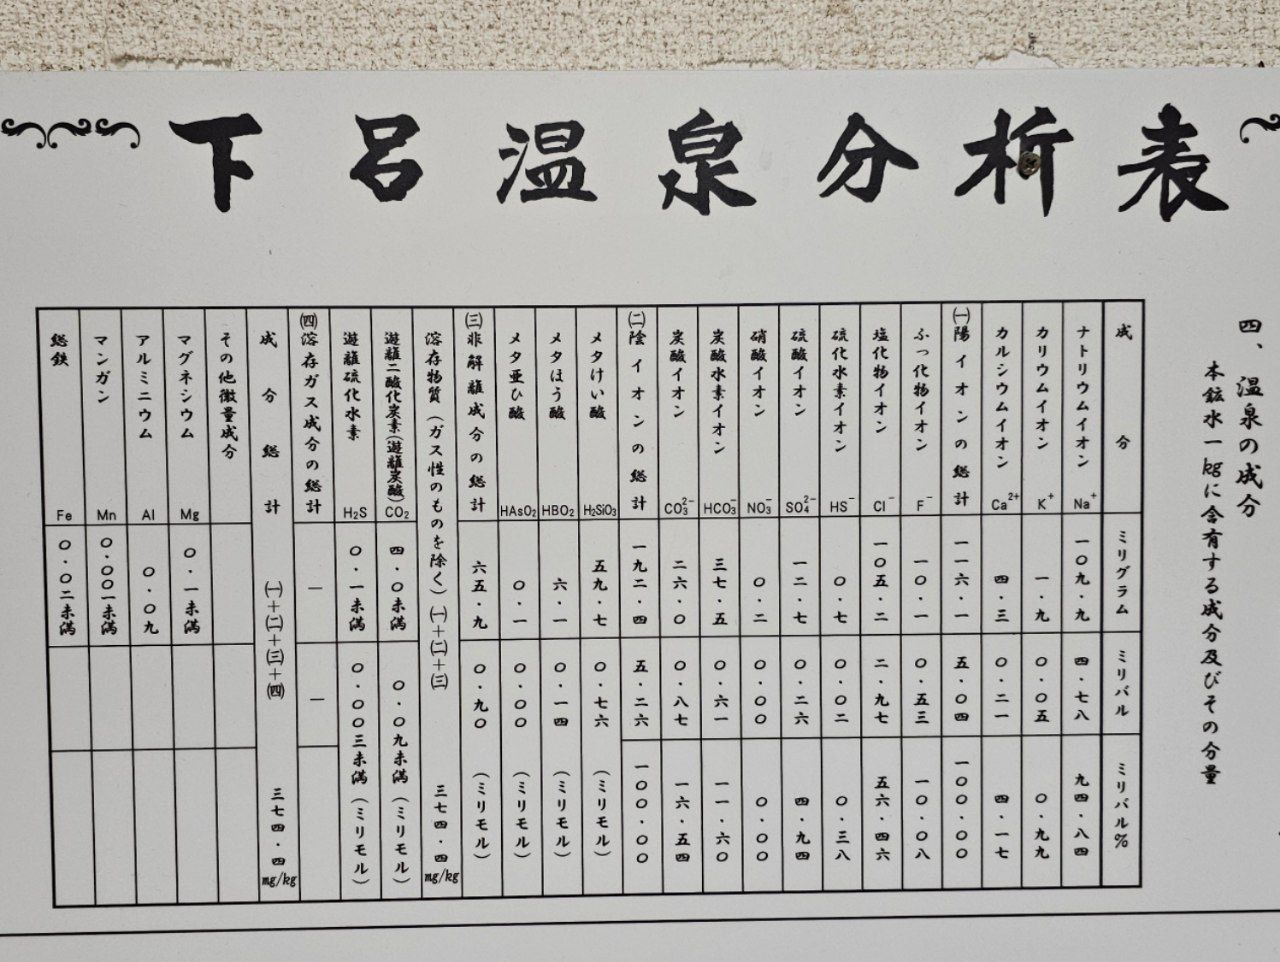 下呂温泉分析表
四、温泉の成分
本鉱水一kgに含有する成分及びその分量
成分 ミリグラム ミリバル ミリバル%
ナトリウムイオン Na⁺ 一〇九・九 四・七八 九四・八四
カリウムイオン K⁺ 一・九 〇・〇五 〇・九九
カルシウムイオン Ca²⁺ 四・三 〇・二一 四・一七
㈠陽イオンの総計 一一六・一 五・〇四 一〇〇・〇〇
ふっ化物イオン F⁻ 一〇・一 〇・五三 一〇・〇八
塩化物イオン Cl⁻ 一〇五・二 二・九七 五六・四六
硫化水素イオン HS⁻ 〇・七 〇・〇二 〇・三八
硫酸イオン SO₄²⁻ 一二・七 〇・二六 四・九四
硝酸イオン NO₃⁻ 〇・二 〇・〇〇 〇・〇〇
炭酸水素イオン HCO₃⁻ 三七・五 〇・六一 一一・六〇
炭酸イオン CO₃²⁻ 二六・〇 〇・八七 一六・五四
㈡陰イオンの総計 一九二・四 五・二六 一〇〇・〇〇
メタけい酸 H₂SiO₃ 五九・七 〇・七六 (ミリモル)
メタほう酸 HBO₂ 六・一 〇・一四 (ミリモル)
メタ亜ひ酸 HAsO₂ 〇・一 〇・〇〇 (ミリモル)
㈢非解離成分の総計 六五・九 〇・九〇 (ミリモル)
溶存物質(ガス性のものを除く)㈠+㈡+㈢ 三七四・四mg/kg
遊離二酸化炭素(遊離炭酸) CO₂ 四・〇未満 〇・〇九未満(ミリモル)
遊離硫化水素 H₂S 〇・一未満 〇・〇〇三未満(ミリモル)
㈣溶存ガス成分の総計 — —
成分総計 ㈠+㈡+㈢+㈣ 三七四・四mg/kg
その他微量成分
マグネシウム Mg 〇・一未満
アルミニウム Al 〇・〇九
マンガン Mn 〇・〇〇一未満
総鉄 Fe 〇・〇二未満